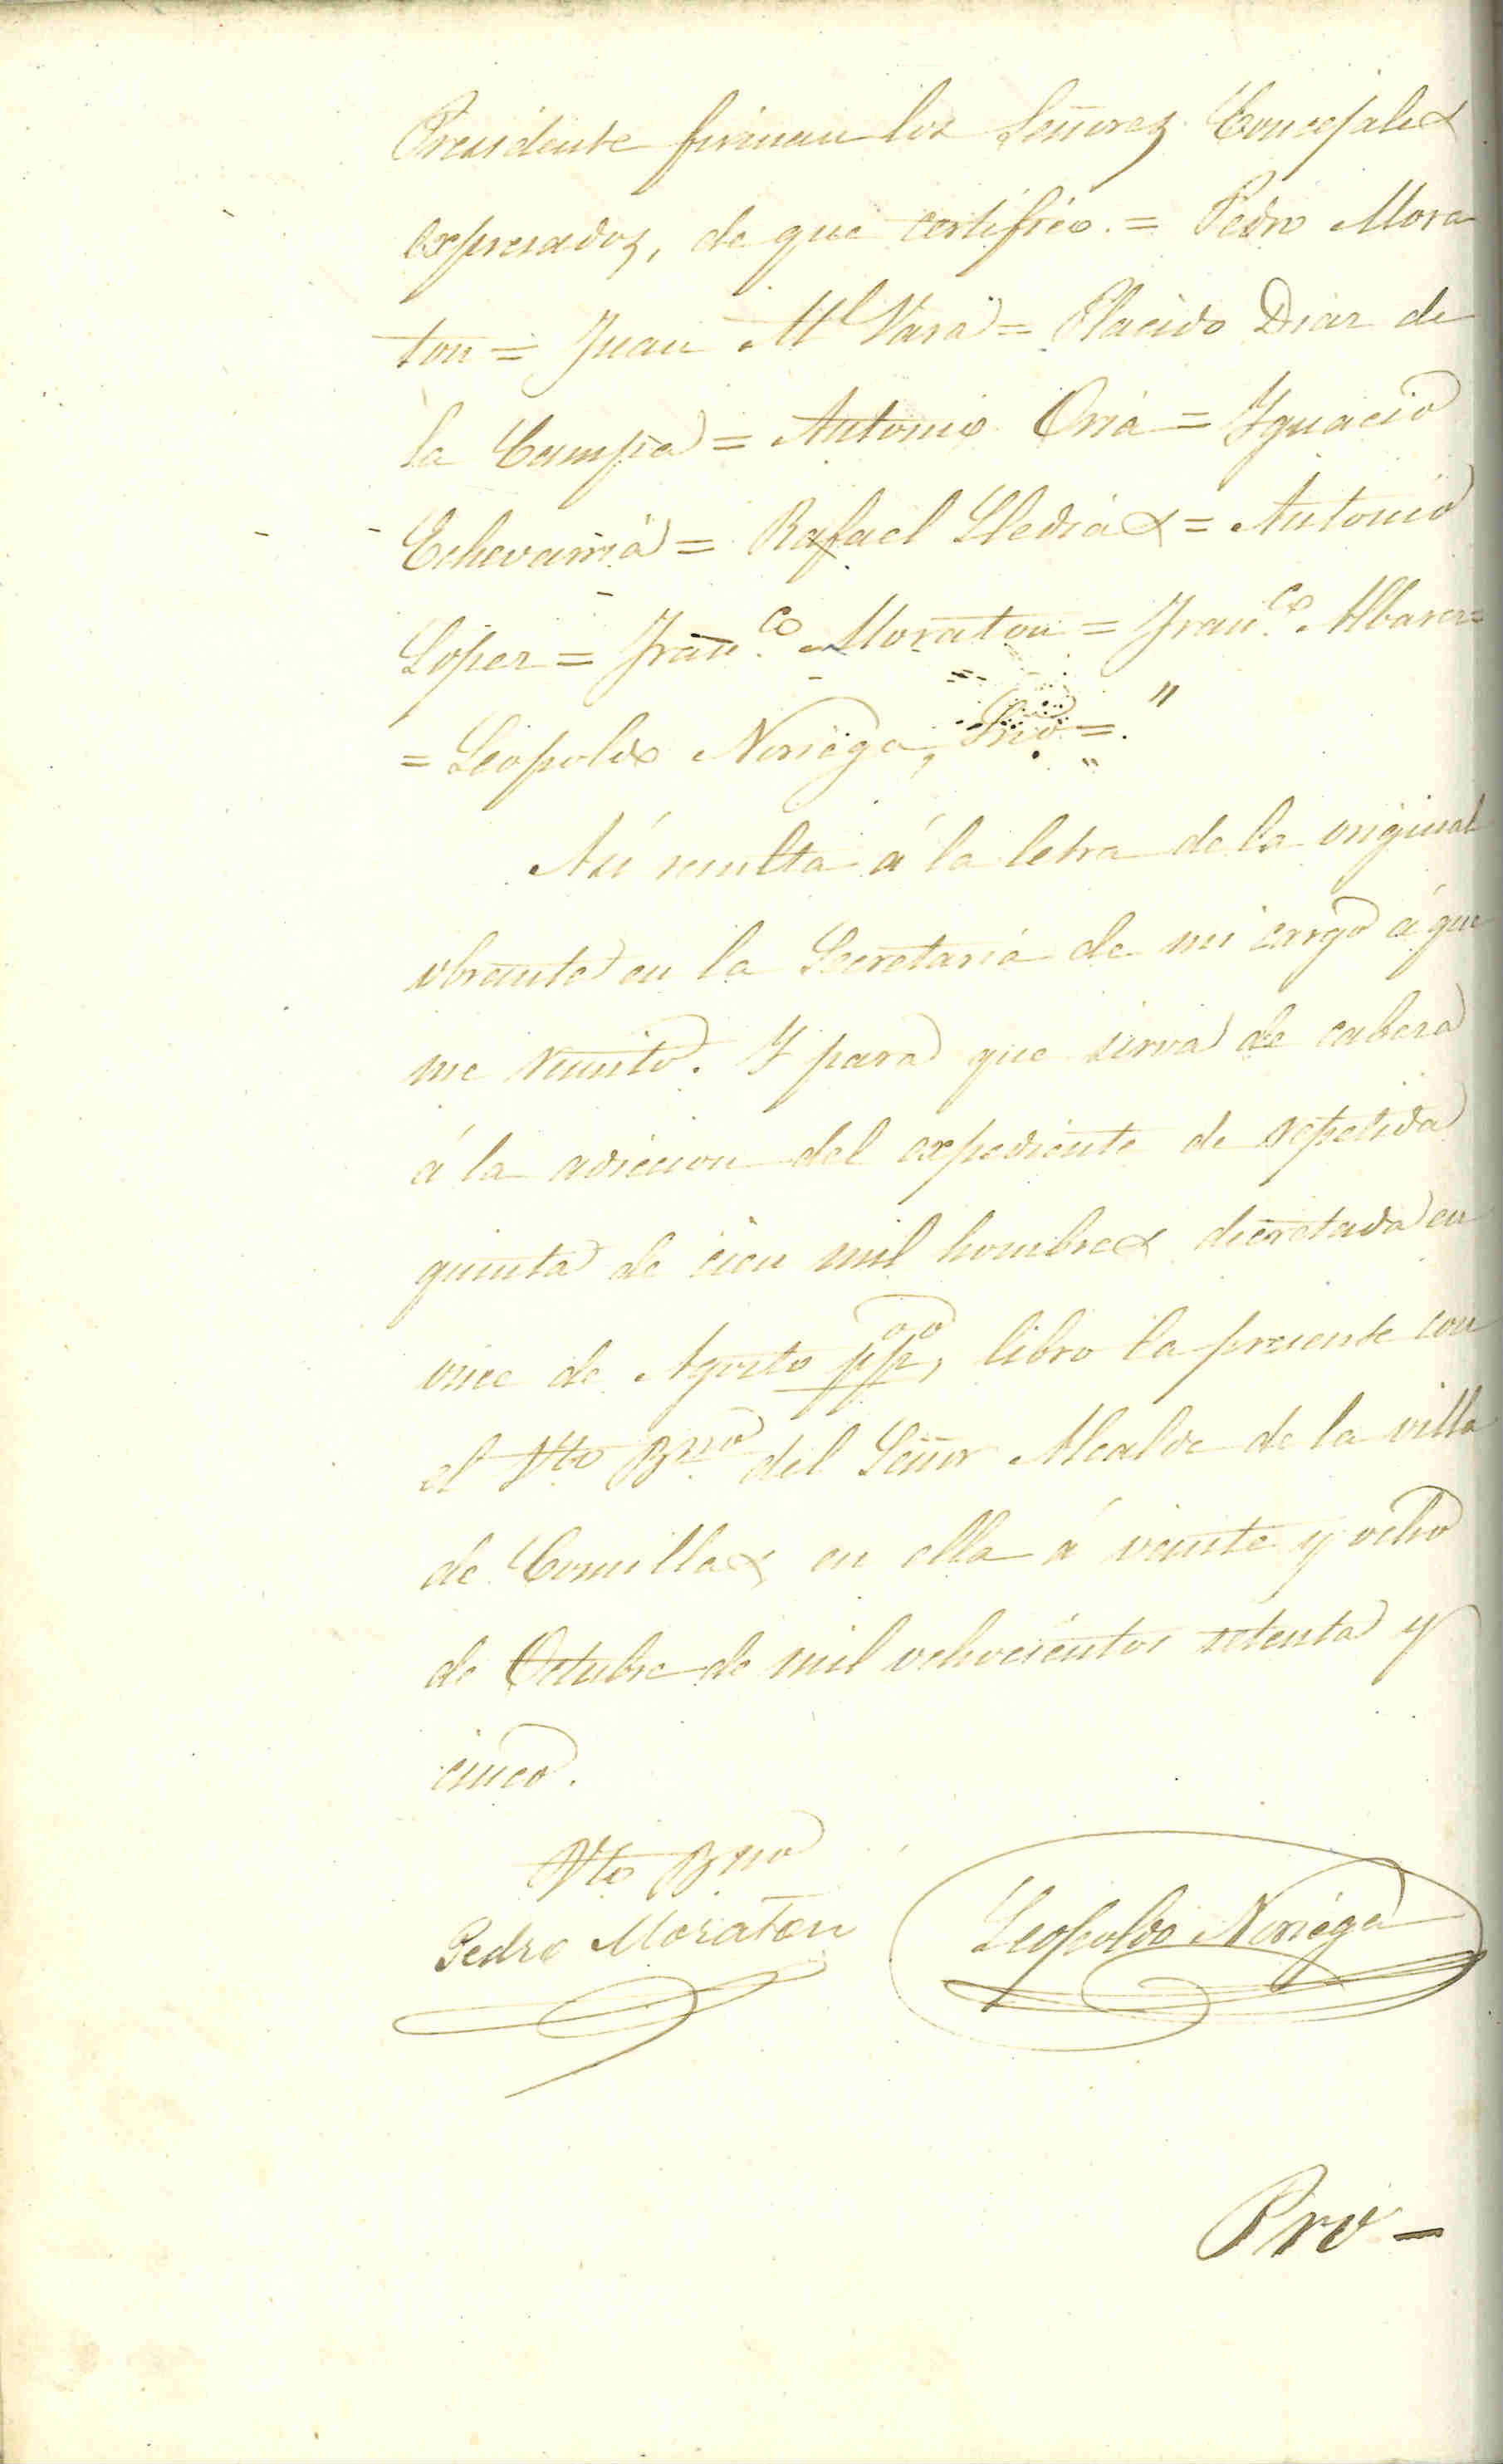 Presidente firman los Señores Concejales
expresados, de que certifico. = Pedro Mora
ton = Juan Ml Vara = Placido Diaz de
la Campa = Antonio Oria = Ygnacio
Echevarria = Rafael Lledias = Antonio
Lopez = Franco. Moraton = Franco. Albarez=
= Leopoldo Noriega, Srio =."
Asi resulta á la letra de la original
obrante en la Secretaria de mi cargo á que
me remito. Y para que sirva de cabeza
á la adiccion del expediente de repetida
quinta de cien mil hombres decretada en
once de Agosto ppoo, libro la presente con
el Vto Bno del Señor Alcalde de la villa
de Comillas en ella á veinte y ocho
de Octubre de mil ochocientos setenta y
cinco.
Vto Bno
Pedro Moraton Leopoldo Noriega
Pro-